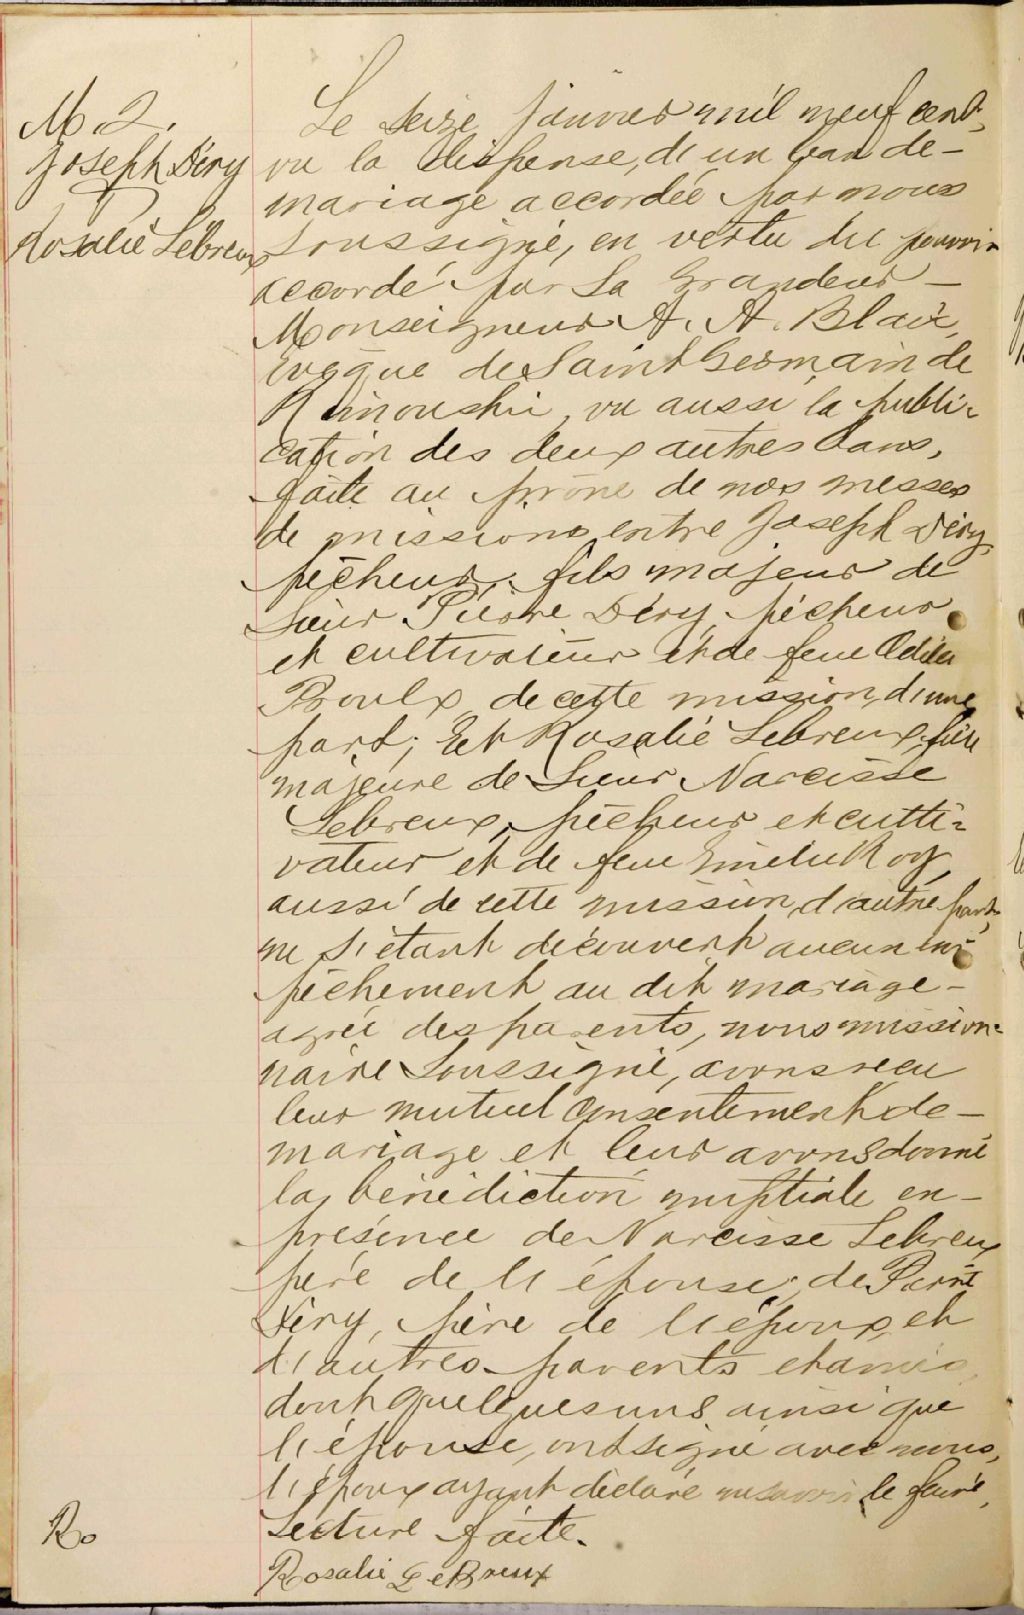 M 2.
Joseph Déry
Rosalie Lebreux
Le seize janvier mil neuf cent,
vu la dispense, d'un ban de-
mariage accordée par nous
soussigné, en vertu du pouvoir
accordé par Sa Grandeur -
Monseigneur A. A. Blais,
évêque de Saint Germain de
Rimouski, vu aussi la publi-
cation des deux autres bans,
faite au prône de nos messes
de missions entre Joseph Déry
pêcheur, fils majeur de
Sieur Pierre Déry, pêcheur
et cultivateur et de feue Odile
Proulx de cette mission, d'une
part; Et Rosalie Lebreux fille
majeure de Sieur Narcisse
Lebreux, pêcheur et culti-
vateur et de feue Emélie Roy,
aussi de cette mission, d'autre part,
ne s'étant découvert aucun em-
pêchement au dit mariage-
agréé des parents, nous mission-
naire soussigné, avons reçu
leur mutuel consentement de-
mariage et leur avons donné
la bénédiction nuptiale en-
présence de Narcisse Lebreux
père de l'épouse, de Pierre
Déry, père de l'époux, et
d'autres parents et amis,
dont quelques uns ainsi que
l'épouse, ont signé avec nous,
l'époux ayant déclaré ne savoir le faire,
Lecture faite.
Ro
Rosalie LeBreux